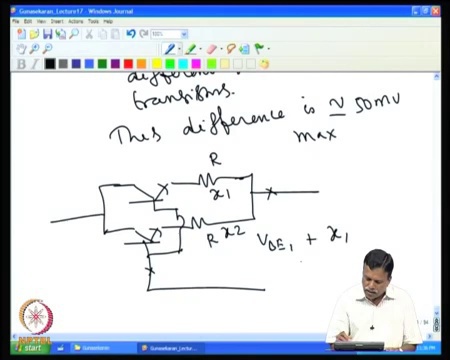 Gunasekaran_Lecture17 - Windows Journal
File Edit View Insert Actions Tools Help
100%
B I
transistors.
This difference is ≃ 50mV
max
R
x1
R x2 VBE1 + x1
NPTEL
start Gunasekaran Gunasekaran_Lectur...